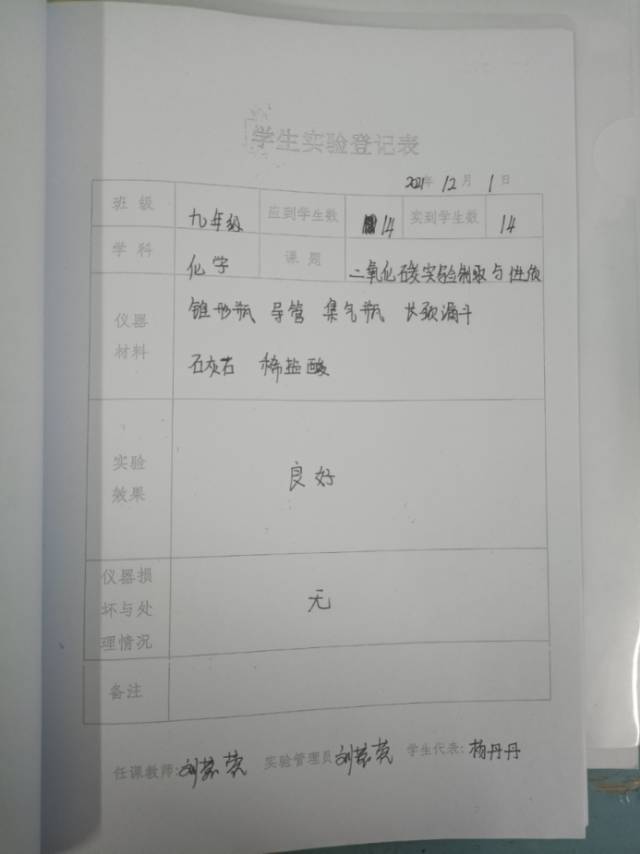 学生实验登记表
2021年 12月 1日
班级 九年级 应到学生数 14 实到学生数 14
学科 化学 课题 二氧化碳实验制取与性质
仪器材料 锥形瓶 导管 集气瓶 长颈漏斗
石灰石 稀盐酸
实验效果 良好
仪器损坏与处理情况 无
备注
任课教师: 刘 实验管理员 刘 学生代表: 杨丹丹